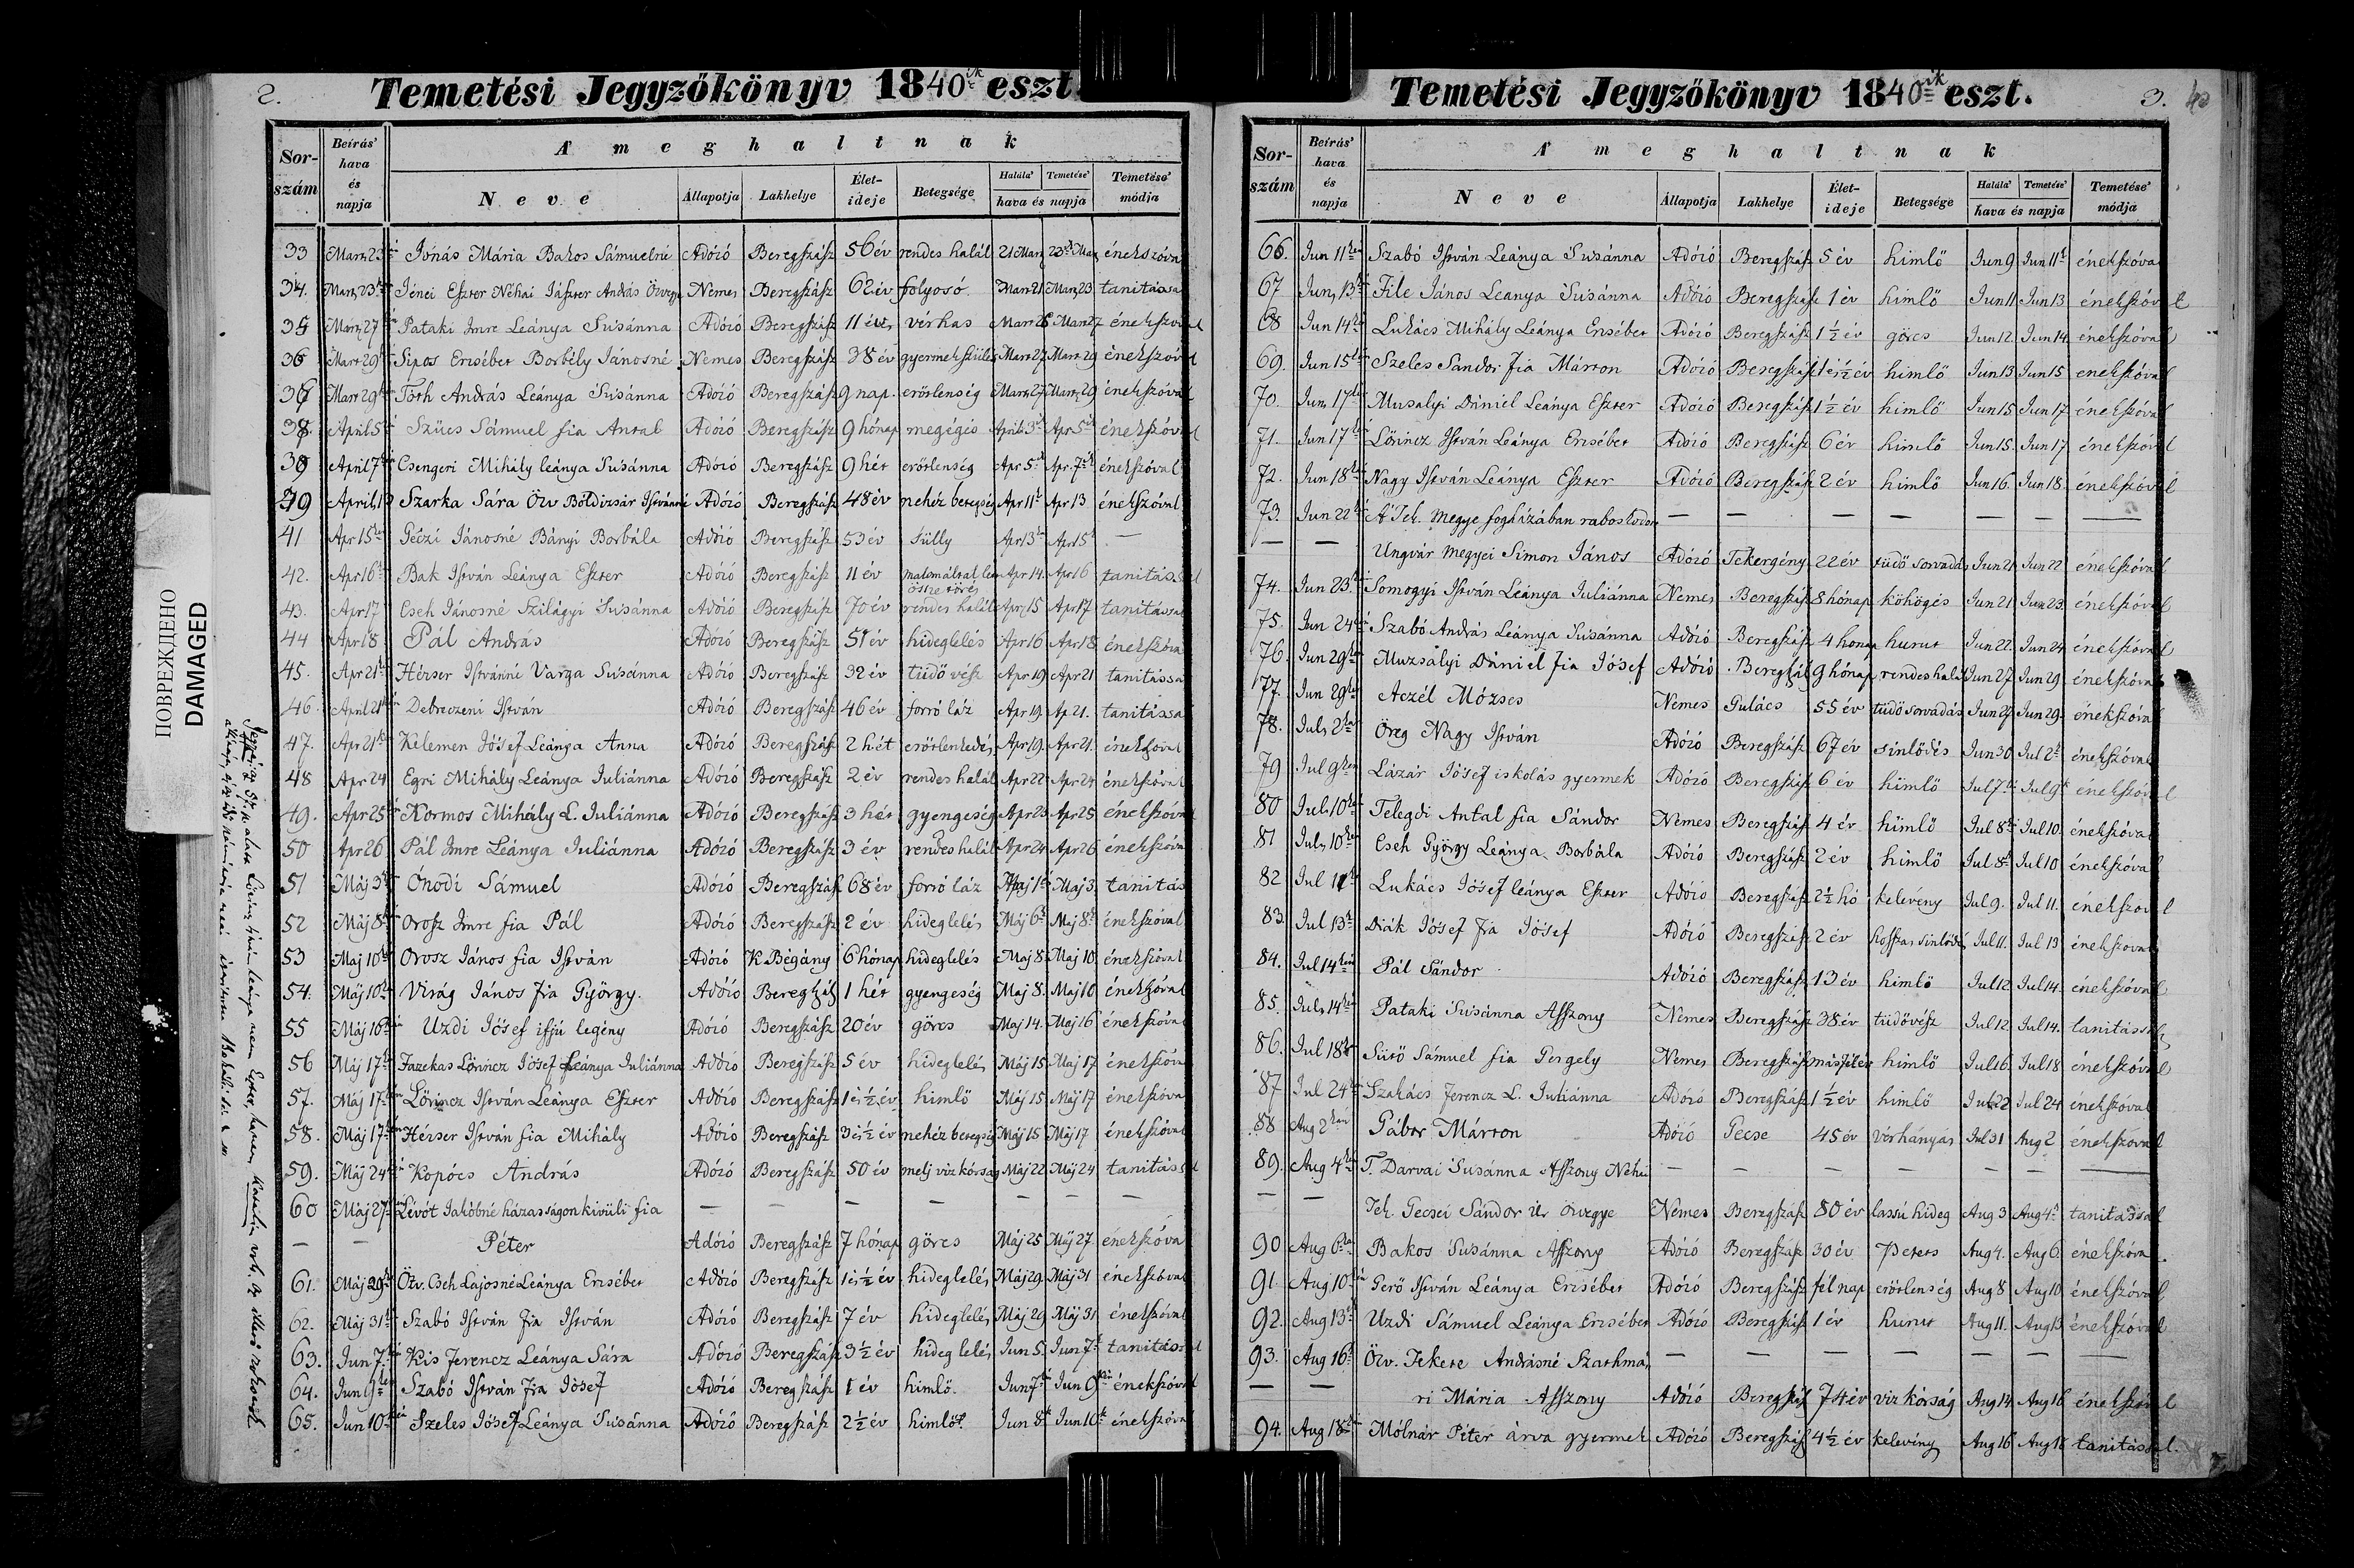 2.
Temetési Jegyzőkönyv 1840ik eszt.
Sor-szám Beírás' hava és napja A' meghaltnak
Neve Állapotja Lakhelye Élet-ideje Betegsége Halála' Temetése' hava és napja Temetése' módja
33 Mart 23 Jónás Mária Bakos Sámuelné Adózó Beregszász 56 év rendes halál 21 Mart 23 Mart énekszóval
34. Mart 23 Jénei Eszter Néhai Jászter András Özvegye Nemes Beregszász 62 év folyosó Mart 21 Mart 23. tanitással
35 Márt 27 Pataki Imre Leánya Susánna Adózó Beregszász 11 éves vérhas Mart 26 Mart 27 énekszóval
36 Mart 29 Sipos Ersébet Borbély Jánosné Nemes Beregszász 38 év gyermekszülés Mart 27 Mart 29 énekszóval
37 Mart 29 Tóth András Leánya Susánna Adózó Beregszász 9 nap. erőtlenség Mart 27 Mart 29 énekszóval
38. April 5 Szücs Sámuel fia Antal Adózó Beregszász 9 hónap megégés April 3 Apr 5 énekszóval
39 April 7 Csengeri Mihály leánya Susánna Adózó Beregszász 9 hét erőtlenség Apr 5 Apr. 7 énekszóval
40 April 13 Szarka Sára Özv Boldizsár Istvánné Adózó Beregszász 48 év nehéz betegség Apr 11 Apr 13 énekszóval
41 Apr 15 Géczi Jánosné Bányi Borbála Adózó Beregszász 53 év sülly Apr 13 Apr 15 —
42. Apr 16 Bak István Leánya Eszter Adózó Beregszász 11 év össze törés Apr 14. Apr 16 tanitással
43. Apr 17 Cseh Jánosné Szilágyi Susánna Adózó Beregszász 70 év rendes halál Apr 15 Apr 17 tanitással
44 Apr 18 Pál András Adózó Beregszász 51 év hideglelés Apr 16 Apr 18 énekszóval
45. Apr 21 Hérser Istvánné Varga Susánna Adózó Beregszász 32 év tüdő vész Apr 19 Apr 21 tanitással
46. April 21 Debreczeni István Adózó Beregszász 46 év forró láz Apr 19. Ap 21. tanitással
47. Apr 21 Kelemen Jósef Leánya Anna Adózó Beregszász 2 hét erőtlenkedés Apr 19. Apr 21. énekszóval
48 Apr 24 Egri Mihály Leánya Juliánna Adózó Beregszász 2 év rendes halál Apr 22 Apr 24 énekszóval
49. Apr 25 Kormos Mihály L. Juliánna Adózó Beregszász 3 hét gyengeség Apr 23 Apr 25 énekszóval
50 Apr 26 Pál Imre Leánya Juliánna Adózó Beregszász 3 év rendes halál Apr 24 Apr 26 énekszóval
51 Máj 3 Ónodi Sámuel Adózó Beregszász 68 év forró láz Maj 1 Maj 3 tanitás
52 Máj 8 Orosz Imre fia Pál Adózó Beregszász 2 év hideglelés Máj 6 Maj 8 énekszóval
53 Maj 10 Orosz János fia István Adózó K Bégány 6 hónap hideglelés Maj 8 Maj 10 énekszóval
54. Máj 10 Virág János fia György. Adózó Beregszász 1 hét gyengeség Maj 8. Maj 10 énekszóval
55 Máj 16 Uzdi Jósef ifjú legény Adózó Beregszász 20 év görcs Maj 14. Maj 16 énekszóval
56 Máj 17 Fazekas Lőrincz Jósef Leánya Juliánna Adózó Beregszász 5 év hideglelés Máj 15 Maj 17 énekszóval
57. Máj 17 Lőrincz István Leánya Eszter Adózó Beregszász 1 és ½ év himlő Máj 15 Máj 17 énekszóval
58. Máj 17 Hérser István fia Mihály Adózó Beregszász 3 és ½ év nehéz betegség Máj 15 Máj 17 énekszóval
59. Máj 24 Kopócs András Adózó Beregszász 50 év melj viz kórság Máj 22 Máj 24 tanitással
60 Máj 27 Lévót Jakóbné házasságon kivüli fia — — — — — — —
— — Péter Adózó Beregszász 7 hónap görcs Máj 25 Máj 27 énekszóval
61. Máj 29 Özv. Cseh Lajosné Leánya Ersébet Adózó Beregszász 1 és ½ év hideglelés Máj 29. Máj 31 énekszóval
62. Máj 31 Szabó István fia István Adózó Beregszász 7 év hideglelés Máj 29 Máj 31 énekszóval
63. Jun 7. Kis Ferencz Leánya Sára Adózó Beregszász 3½ év hideglelés Jun 5. Jun 7 tanitással
64. Jun 9 Szabó István fia Jósef Adózó Beregszász 1 év himlő. Jun 7 Jun 9 énekszóval
65. Jun 10 Szeles Jósef Leánya Susánna Adózó Beregszász 2½ év himlő. Jun 8 Jun 10 énekszóval
ПОВРЕЖДЕНО
DAMAGED
3.
Temetési Jegyzőkönyv 1840ik eszt.
Sor-szám Beírás' hava és napja A' meghaltnak
Neve Állapotja Lakhelye Élet-ideje Betegsége Halála' Temetése' hava és napja Temetése' módja
66. Jun 11 Szabó István Leánya Susánna Adózó Beregszász 5 év himlő Jun 9 Jun 11 énekszóval
67 Jun 13 File János Leánya Susánna Adózó Beregszász 1 év himlő Jun 11 Jun 13 énekszóval
68 Jun 14 Lukács Mihály Leánya Ersébet Adózó Beregszász 1½ év görcs Jun 12. Jun 14. énekszóval
69. Jun 15 Szeles Sandor fia Márton Adózó Beregszász 1 és ½ év himlő Jun 13 Jun 15 énekszóval
70. Jun 17 Musalyi Dániel Leánya Eszter Adózó Beregszász 1½ év himlő Jun 15 Jun 17. énekszóval
71. Jun 17 Lőrincz István Leánya Ersébet Adózó Beregszász 6 év himlő Jun 15. Jun 17 énekszóval
72. Jun 18 Nagy István Leánya Eszter Adózó Beregszász 2 év himlő Jun 16. Jun 18. énekszóval
73. Jun 22 A' Tek. Megye fogházában raboskodott — — — — — — —
— — Ungvár Megyei Simon János Adózó Tekergény 22 év tüdő sorvadás Jun 21 Jun 22 énekszóval
74. Jun 23. Somogyi István Leánya Juliánna Nemes Beregszász 8 hónap köhögés Jun 21 Jun 23. énekszóval
75. Jun 24 Szabó András Leánya Susánna Adózó Beregszász 4 hónap hurut Jun 22. Jun 24 énekszóval
76. Jun 29 Muzsályi Dániel fia Jósef Adózó Beregszász 9 hónap rendes halál Jun 27 Jun 29 énekszóval
77. Jun 29 Aczél Mózses Nemes Gulács 55 év tüdő sorvadás Jun 27 Jun 29. énekszóval
78. Jul 2 Öreg Nagy István Adózó Beregszász 67 év sinlődés Jun 30 Jul 2 énekszóval
79 Jul 9 Lázár Jósef iskolás gyermek Adózó Beregszász 6 év himlő Jul 7 Jul 9 énekszóval
80 Jul 10 Telegdi Antal fia Sándor Nemes Beregszász 4 év himlő Jul 8 Jul 10. énekszóval
81 Jul 10 Cseh György Leánya Borbála Adózó Beregszász 2 év himlő Jul 8 Jul 10 énekszóval
82 Jul 11 Lukács Jósef leánya Eszter Adózó Beregszász 2½ hó kelevény Jul 9. Jul 11. énekszóval
83. Jul 13 Diák Jósef fia Jósef Adózó Beregszász 2 év hosszas sinlődés Jul 11. Jul 13 énekszóval
84. Jul 14 Pál Sándor Adózó Beregszász 13 év himlő Jul 12 Jul 14. énekszóval
85. Jul 14 Pataki Susánna Asszony Nemes Beregszász 38 év tüdővész Jul 12 Jul 14. tanitással
86. Jul 18 Sütő Sámuel fia Gergely Nemes Beregszász másfél év himlő Jul 16. Jul 18 énekszóval
87 Jul 24 Szakács Ferencz L. Juliánna Adózó Beregszász 1½ év himlő Jul 22 Jul 24 énekszóval
88 Aug 2 Gábor Márton Adózó Gecse 45 év vérhányás Jul 31 Aug 2 énekszóval
89. Aug 4 T. Darvai Susánna Asszony Néhai — — — — — — —
— — Tek. Gecsei Sándor úr özvegye Nemes Beregszász 80 év lassú hideg Aug 3 Aug 4 tanitással
90 Aug 6 Bakos Susánna Asszony Adózó Beregszász 30 év Petets Aug 4. Aug 6 énekszóval
91. Aug 10 Gerő István Leánya Ersébet Adózó Beregszász fél nap erőtlenség Aug 8 Aug 10 énekszóval
92. Aug 13 Uzdi Sámuel Leánya Ersébet Adózó Beregszász 1 év hurut Aug 11. Aug 13 énekszóval
93. Aug 16 Özv. Fekete Andrásné Szathmá — — — — — — —
— — ri Mária Asszony Adózó Beregszász 74 év viz kórság Aug 14 Aug 16 énekszóval
94. Aug 18 Mólnár Péter árva gyermek Adózó Beregszász 4½ év kelevény Aug 16 Aug 18 tanitással.